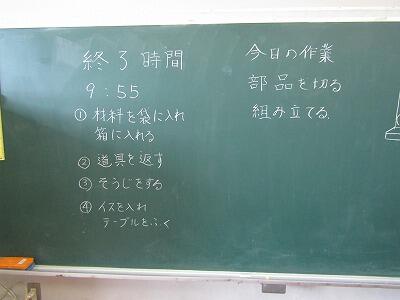 終了時間
9:55
① 材料を袋に入れ
箱に入れる
② 道具を返す
③ そうじをする
④ イスを入れ
テーブルをふく
今日の作業
部品を切る
組み立てる